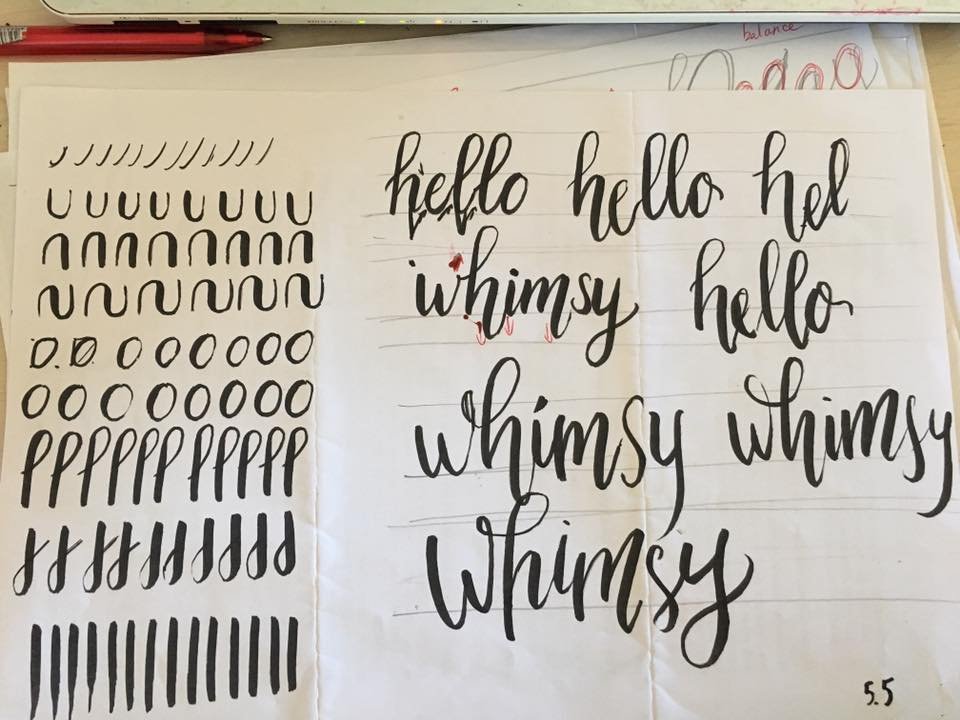 balance
hello hello hel
whimsy hello
whimsy whimsy
whimsy
U U U U U U U U
n n n n n n n n
D. D. O O O O O O
O O O O O O O O
p p p p p p p p p p
5.5